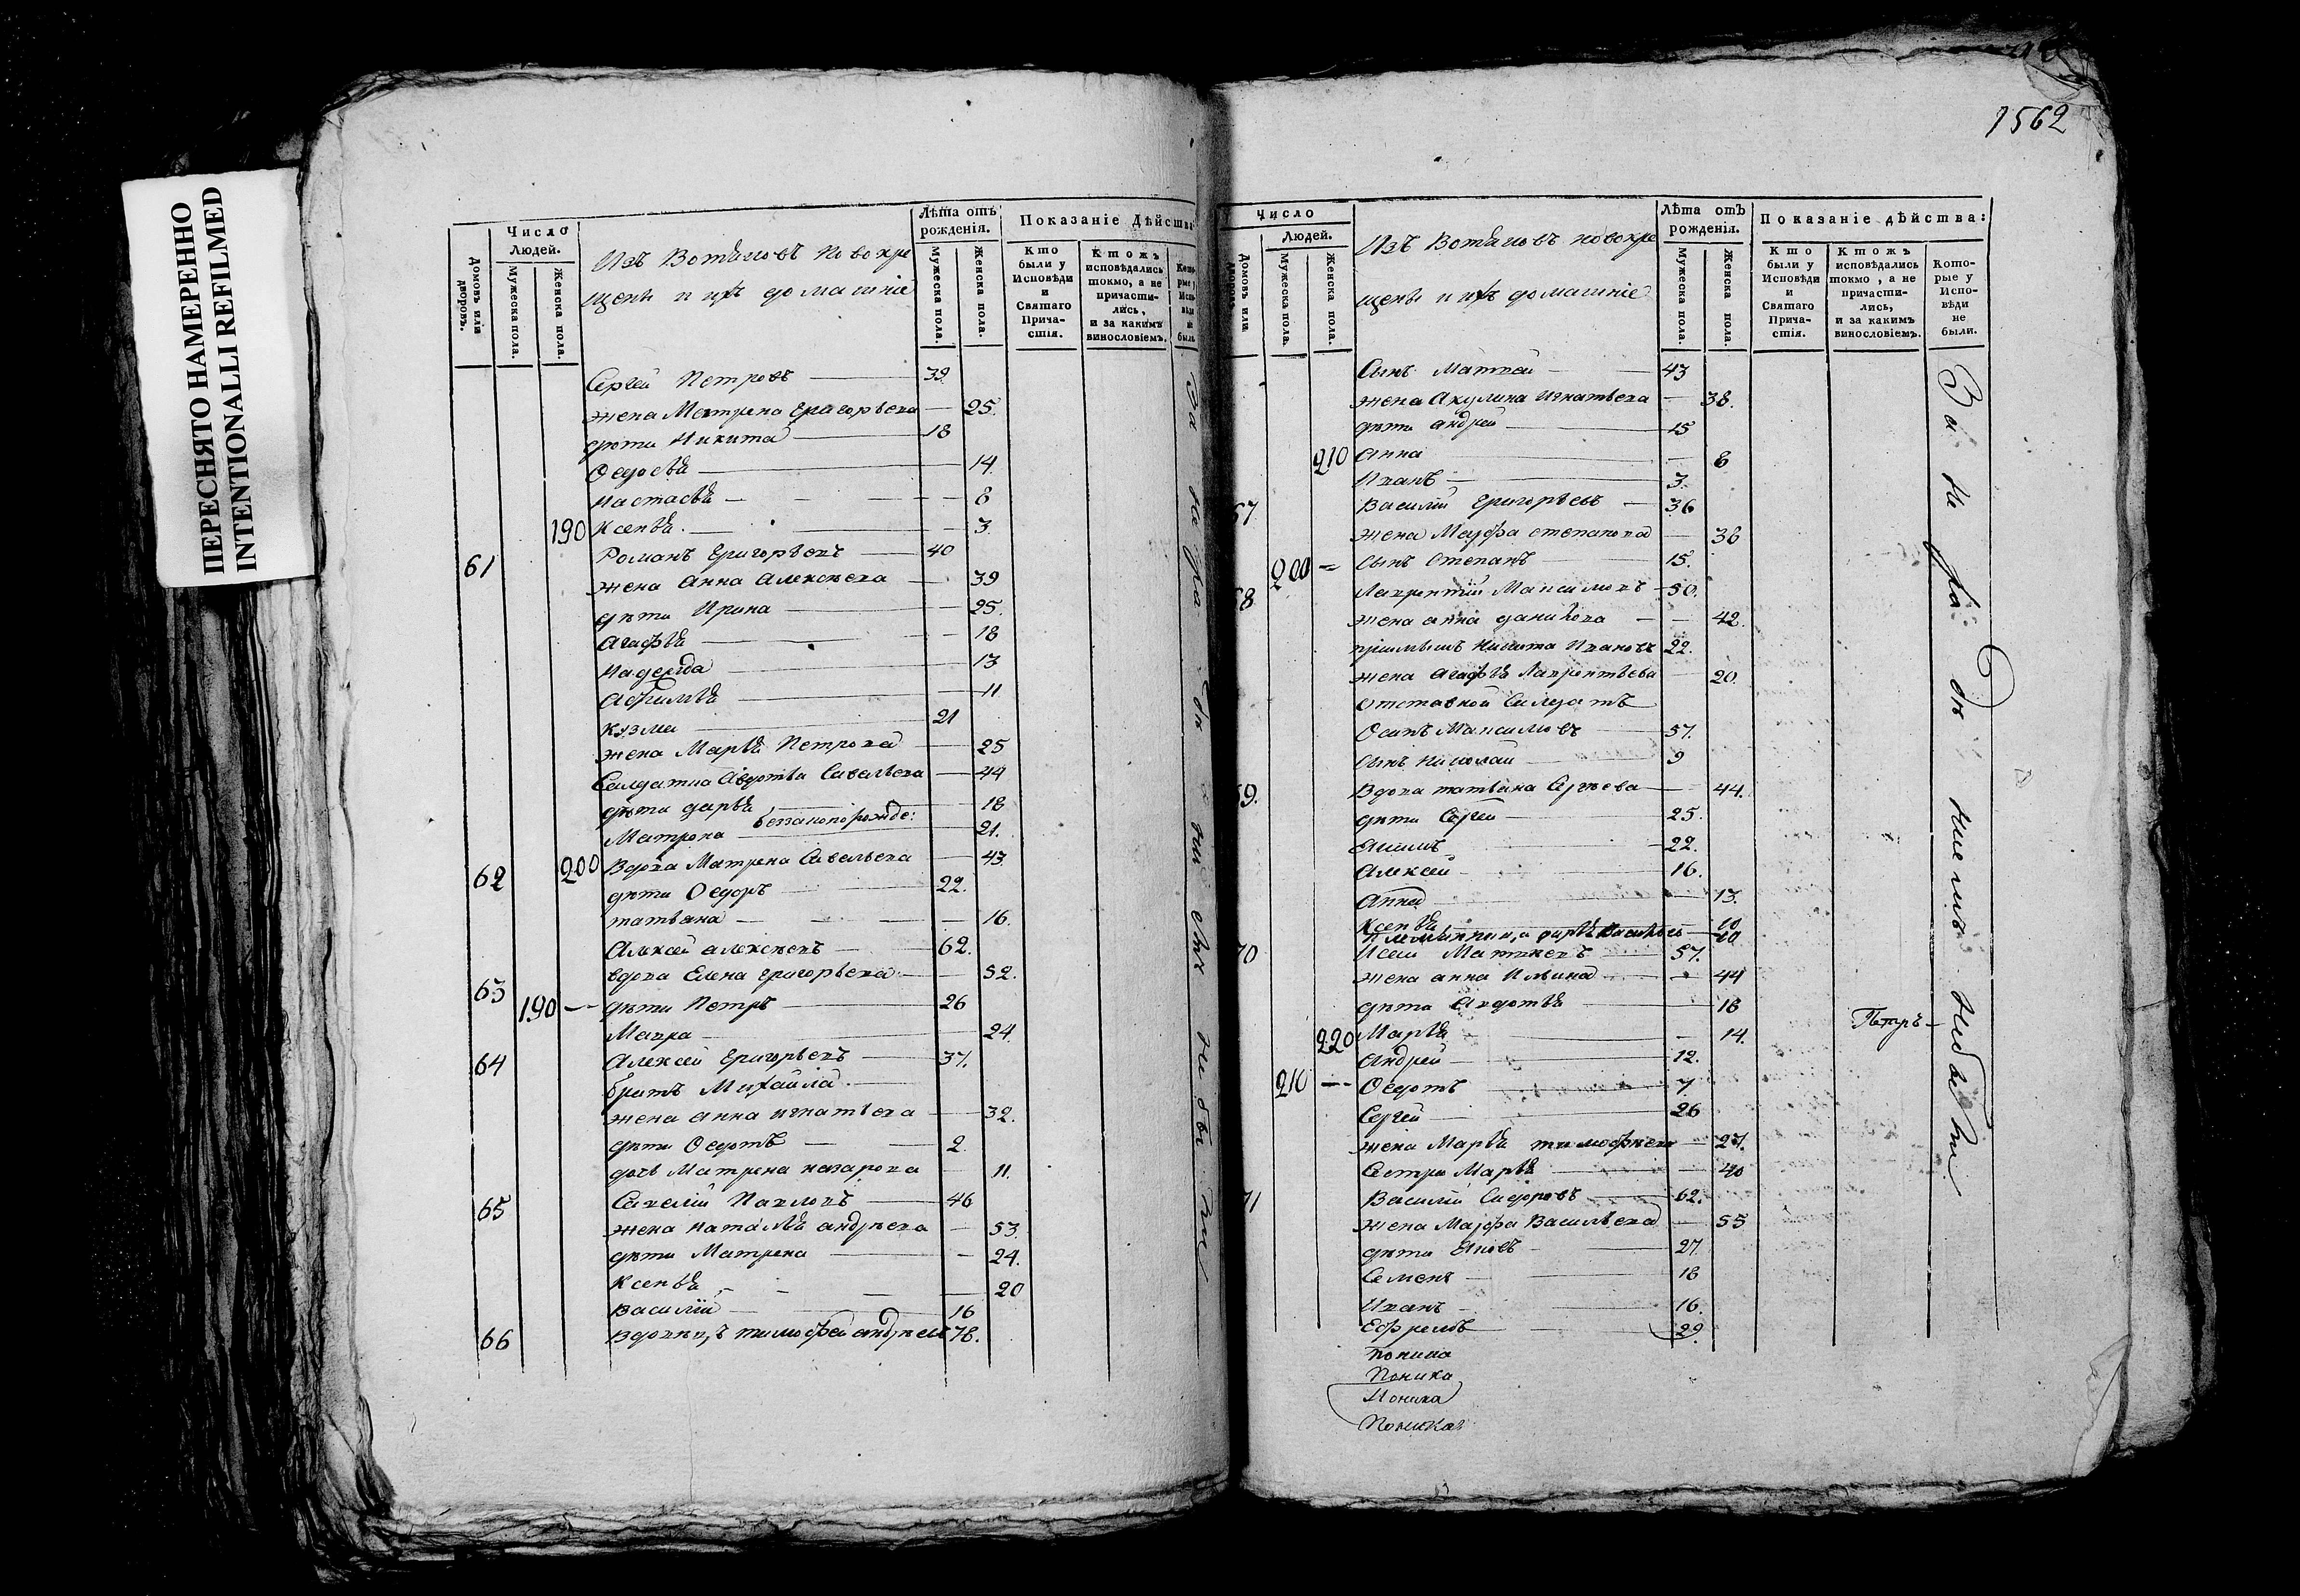 ПЕРЕСНЯТО НАМЕРЕННО
INTENTIONALLI REFILMED
Число
Людей.
Домовъ или дворовъ.
Мужеска пола.
Женска пола.
Изъ Вотяковъ новокре
щены и ихъ домашніе
Лѣта отъ рожденія.
Мужеска пола.
Женска пола.
Показаніе Дѣйства
Кто были у Исповѣди и Святаго Причастія.
Ктожъ исповѣдались токмо, а не причастились, и за какимъ винословіемъ.
Сергей Петровъ 39.
жена Матрена Григорьева 25.
дѣти Никита 18
Ѳедосья 14.
Настасья 8
190 Ксенья 3.
61 Романъ Григорьевъ 40
жена Анна Алексѣева 39
дѣти Ирина 25.
Агафья 18
Надежда 13
Афимья 11
Кузма 21
жена Марья Петрова 25
Салдатка Авдотья Савельева 44
дѣти дарья 18
Матрона беззаконорожде: 21.
62 200 Вдова Матрена Савельева 43
дѣти Ѳедоръ 22.
татьяна 16.
Алексей алексѣевъ 62.
63 вдова Елена григорьева 52.
190 дѣти Петръ 26
Мавра 24.
64 Алексей Григорьевъ 37.
братъ Михайла
жена анна игнатьева 32.
дѣти Ѳедотъ 2.
дочь Матрена назарова 11.
65 Савелій Павловъ 46
жена наталья андреева 53.
дѣти Матрена 24.
Ксенья 20
Василій 16
66 Вдовецъ тимофей андреевъ 78.
1562
Число
Людей.
Домовъ или
Мужеска пола.
Женска пола.
Изъ Вотяковъ новокре
щены и ихъ домашніе
Лѣта отъ рожденія.
Мужеска пола.
Женска пола.
Показаніе дѣйства:
Кто были у Исповѣди и Святаго Причастія.
Ктожъ исповѣдались токмо, а не причастились, и за какимъ винословіемъ.
Которые у Исповѣди не были.
Сынъ Матвей 43
жена Акулина Игнатьева 38.
дѣти андрей 15
210 анна 8
Иванъ 3.
67 Василій Григорьевъ 36
жена Марфа степанова 36
200 сынъ Степанъ 15.
68 Лаврентій Максимовъ 50.
жена анна данилова 42.
Никита Ивановъ 22.
жена Агафья Лаврентьева 20.
отставной Салдатъ
Осипъ Максимовъ 57.
сынъ Николай 9
69. Вдова татьяна Сргѣева 44.
дѣти Сергей 25.
22.
Алексей 16.
Анна 13.
Ксенья 10
дарья 20
70 Матвѣевъ 57.
жена анна Ильина 44
дѣти Авдотья 18
220 Марья 14.
Петръ
Андрей 12.
210 Ѳедотъ 7.
Сергей 26
жена Марья тимофѣева 27.
Сестра Марья 40
71 Василій Сидоровъ 62.
жена Марфа Васильева 55
дѣти Яковъ 27.
Семенъ 18
Иванъ 16.
Ефремъ 29.